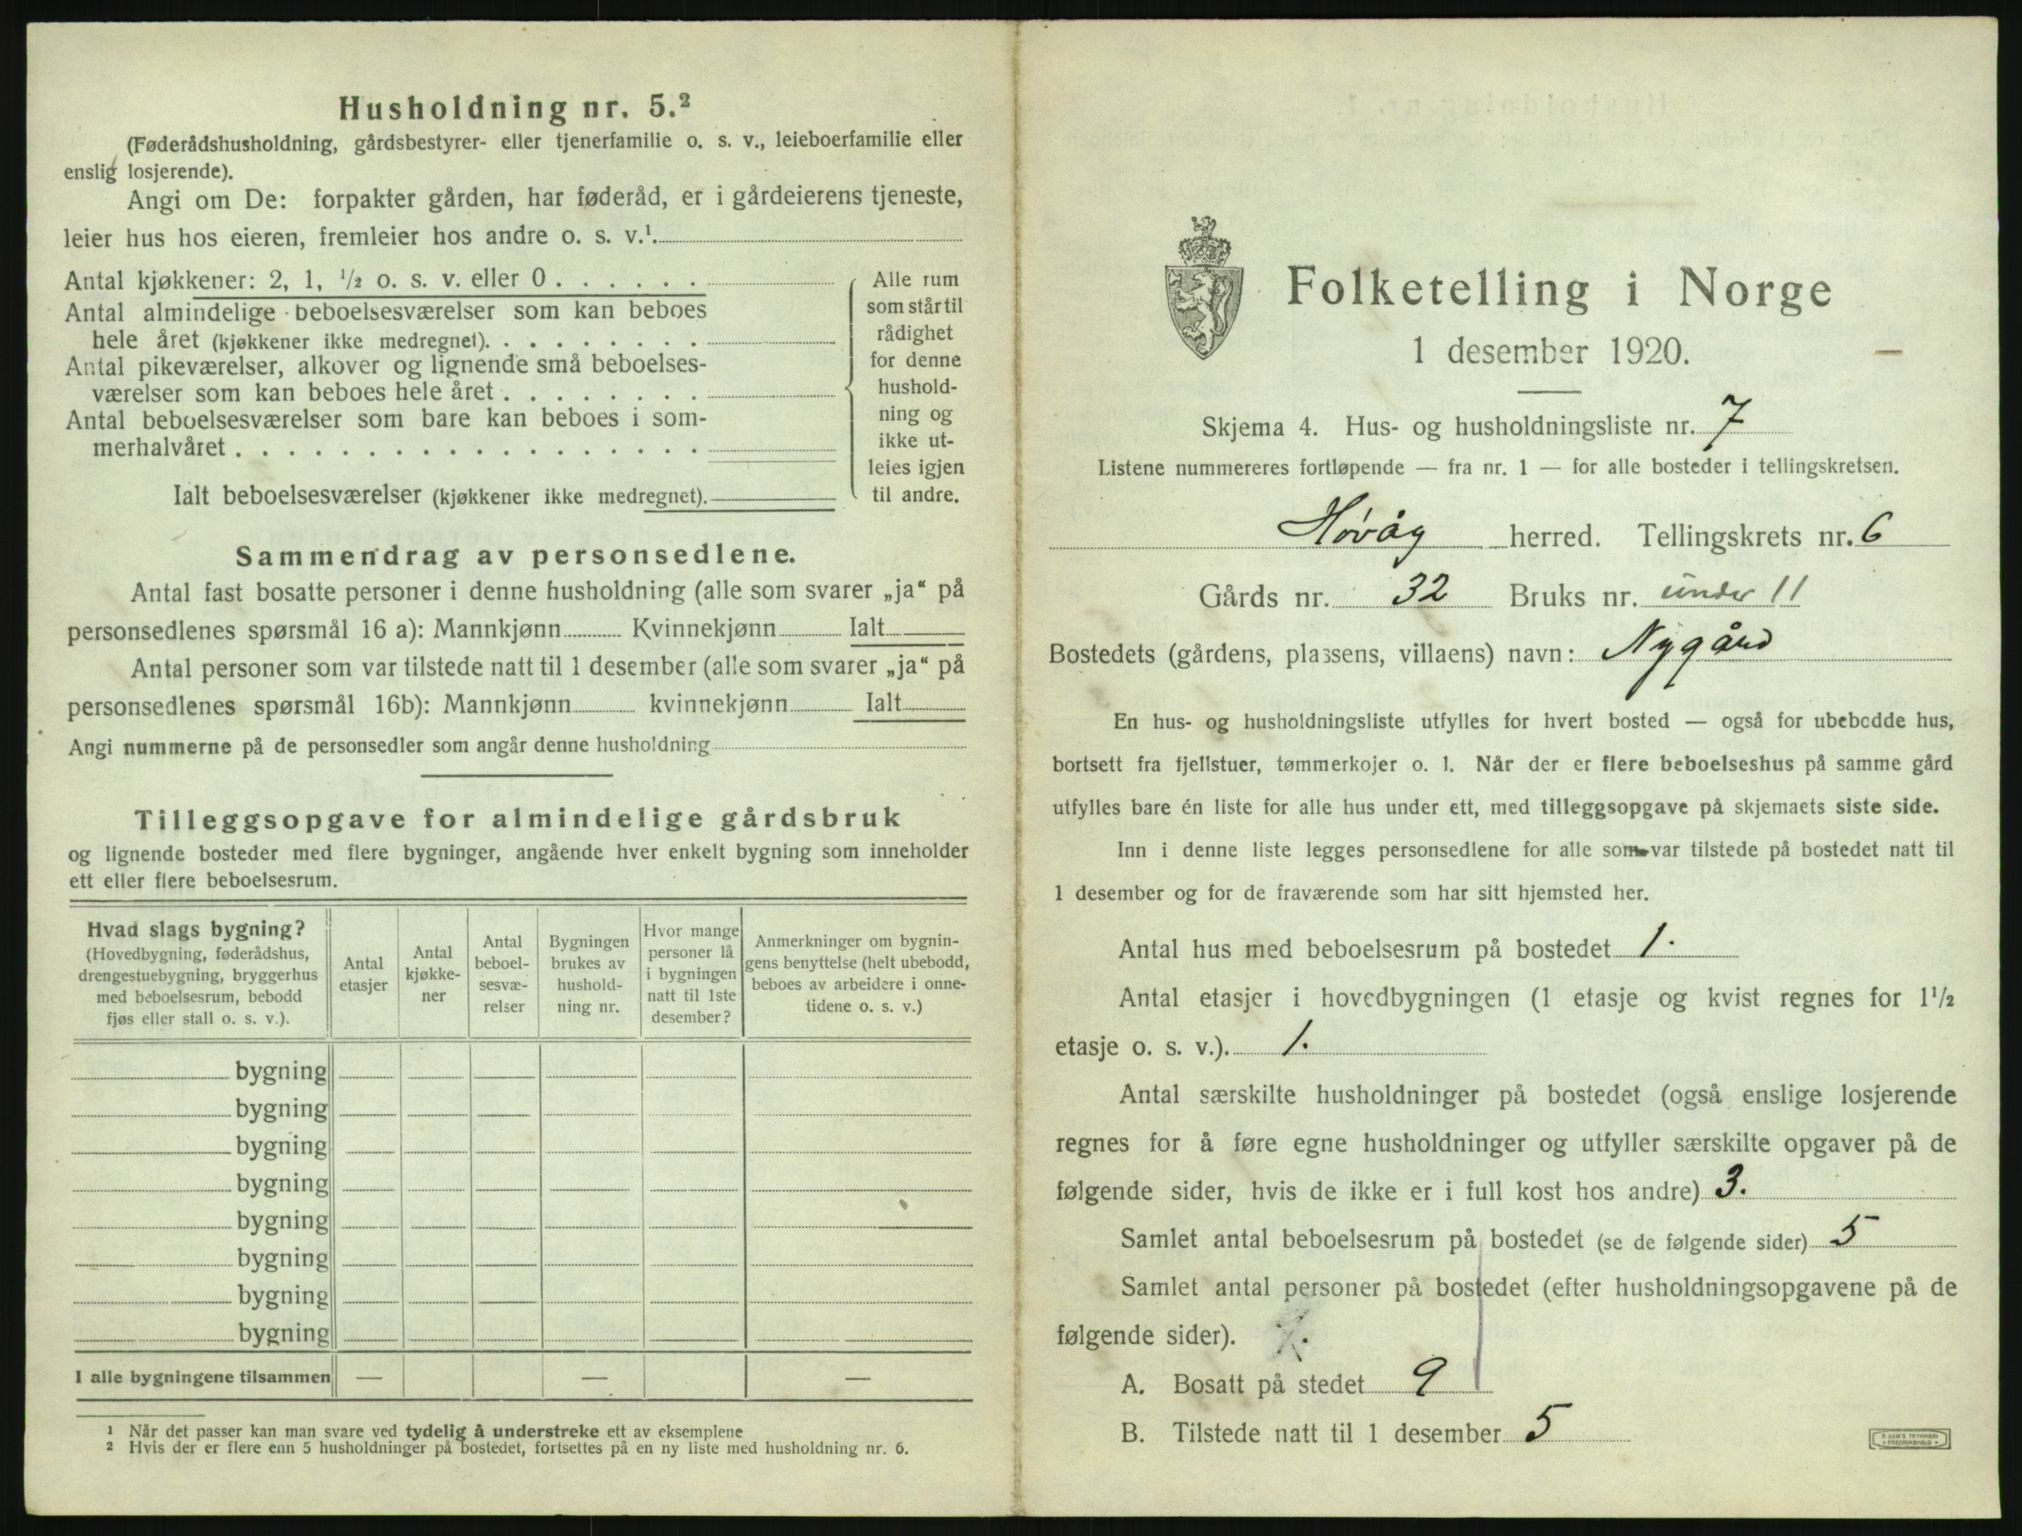 Husholdning nr. 5.²
(Føderådshusholdning, gårdsbestyrer- eller tjenerfamilie o. s. v., leieboerfamilie eller
enslig losjerende).
Angi om De: forpakter gården, har føderåd, er i gårdeierens tjeneste,
leier hus hos eieren, fremleier hos andre o. s. v.¹
Antal kjøkkener: 2, 1, ½ o. s. v. eller 0 . . . . . .
Antal almindelige beboelsesværelser som kan beboes
hele året (kjøkkener ikke medregnet). . . . . . . . .
Antal pikeværelser, alkover og lignende små beboelses-
værelser som kan beboes hele året . . . . . . . .
Antal beboelsesværelser som bare kan beboes i som-
merhalvåret . . . . . . . . . . . . . . . . . .
Ialt beboelsesværelser (kjøkkener ikke medregnet).
Alle rum
som står til
rådighet
for denne
hushold-
ning og
ikke ut-
leies igjen
til andre.
Sammendrag av personsedlene.
Antal fast bosatte personer i denne husholdning (alle som svarer „ja“ på
personsedlenes spørsmål 16 a): Mannkjønn Kvinnekjønn Ialt
Antal personer som var tilstede natt til 1 desember (alle som svarer „ja“ på
personsedlenes spørsmål 16b): Mannkjønn kvinnekjønn Ialt
Angi nummerne på de personsedler som angår denne husholdning
Tilleggsopgave for almindelige gårdsbruk
og lignende bosteder med flere bygninger, angående hver enkelt bygning som inneholder
ett eller flere beboelsesrum.
Hvad slags bygning?
(Hovedbygning, føderådshus,
drengestuebygning, bryggerhus
med beboelsesrum, bebodd
fjøs eller stall o. s. v.).
Antal
etasjer
Antal
kjøkke-
ner
Antal
beboel-
sesvæ-
relser
Bygningen
brukes av
hushold-
ning nr.
Hvor mange
personer lå
i bygningen
natt til 1ste
desember?
Anmerkninger om bygnin-
gens benyttelse (helt ubebodd,
beboes av arbeidere i onne-
tidene o. s. v.)
bygning
bygning
bygning
bygning
bygning
bygning
bygning
bygning
I alle bygningene tilsammen — — —
¹ Når det passer kan man svare ved tydelig å understreke ett av eksemplene
² Hvis der er flere enn 5 husholdninger på bostedet, fortsettes på en ny liste med husholdning nr. 6.
Folketelling i Norge
1 desember 1920.
Skjema 4. Hus- og husholdningsliste nr. 7
Listene nummereres fortløpende — fra nr. 1 — for alle bosteder i tellingskretsen.
Høvåg herred. Tellingskrets nr. 6
Gårds nr. 32 Bruks nr. under 11
Bostedets (gårdens, plassens, villaens) navn: Nygård
En hus- og husholdningsliste utfylles for hvert bosted — også for ubebodde hus,
bortsett fra fjellstuer, tømmerkojer o. l. Når der er flere beboelseshus på samme gård
utfylles bare én liste for alle hus under ett, med tilleggsopgave på skjemaets siste side.
Inn i denne liste legges personsedlene for alle som var tilstede på bostedet natt til
1 desember og for de fraværende som har sitt hjemsted her.
Antal hus med beboelsesrum på bostedet 1.
Antal etasjer i hovedbygningen (1 etasje og kvist regnes for 1½
etasje o. s. v.). 1.
Antal særskilte husholdninger på bostedet (også enslige losjerende
regnes for å føre egne husholdninger og utfyller særskilte opgaver på de
følgende sider, hvis de ikke er i full kost hos andre) 3.
Samlet antal beboelsesrum på bostedet (se de følgende sider) 5
Samlet antal personer på bostedet (efter husholdningsopgavene på de
følgende sider).
A. Bosatt på stedet 9
B. Tilstede natt til 1 desember 5